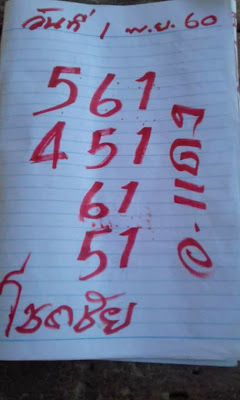 วันที่ 1 พ.ย. 60
561
451
61
51
อ.แดง
โชคชัย